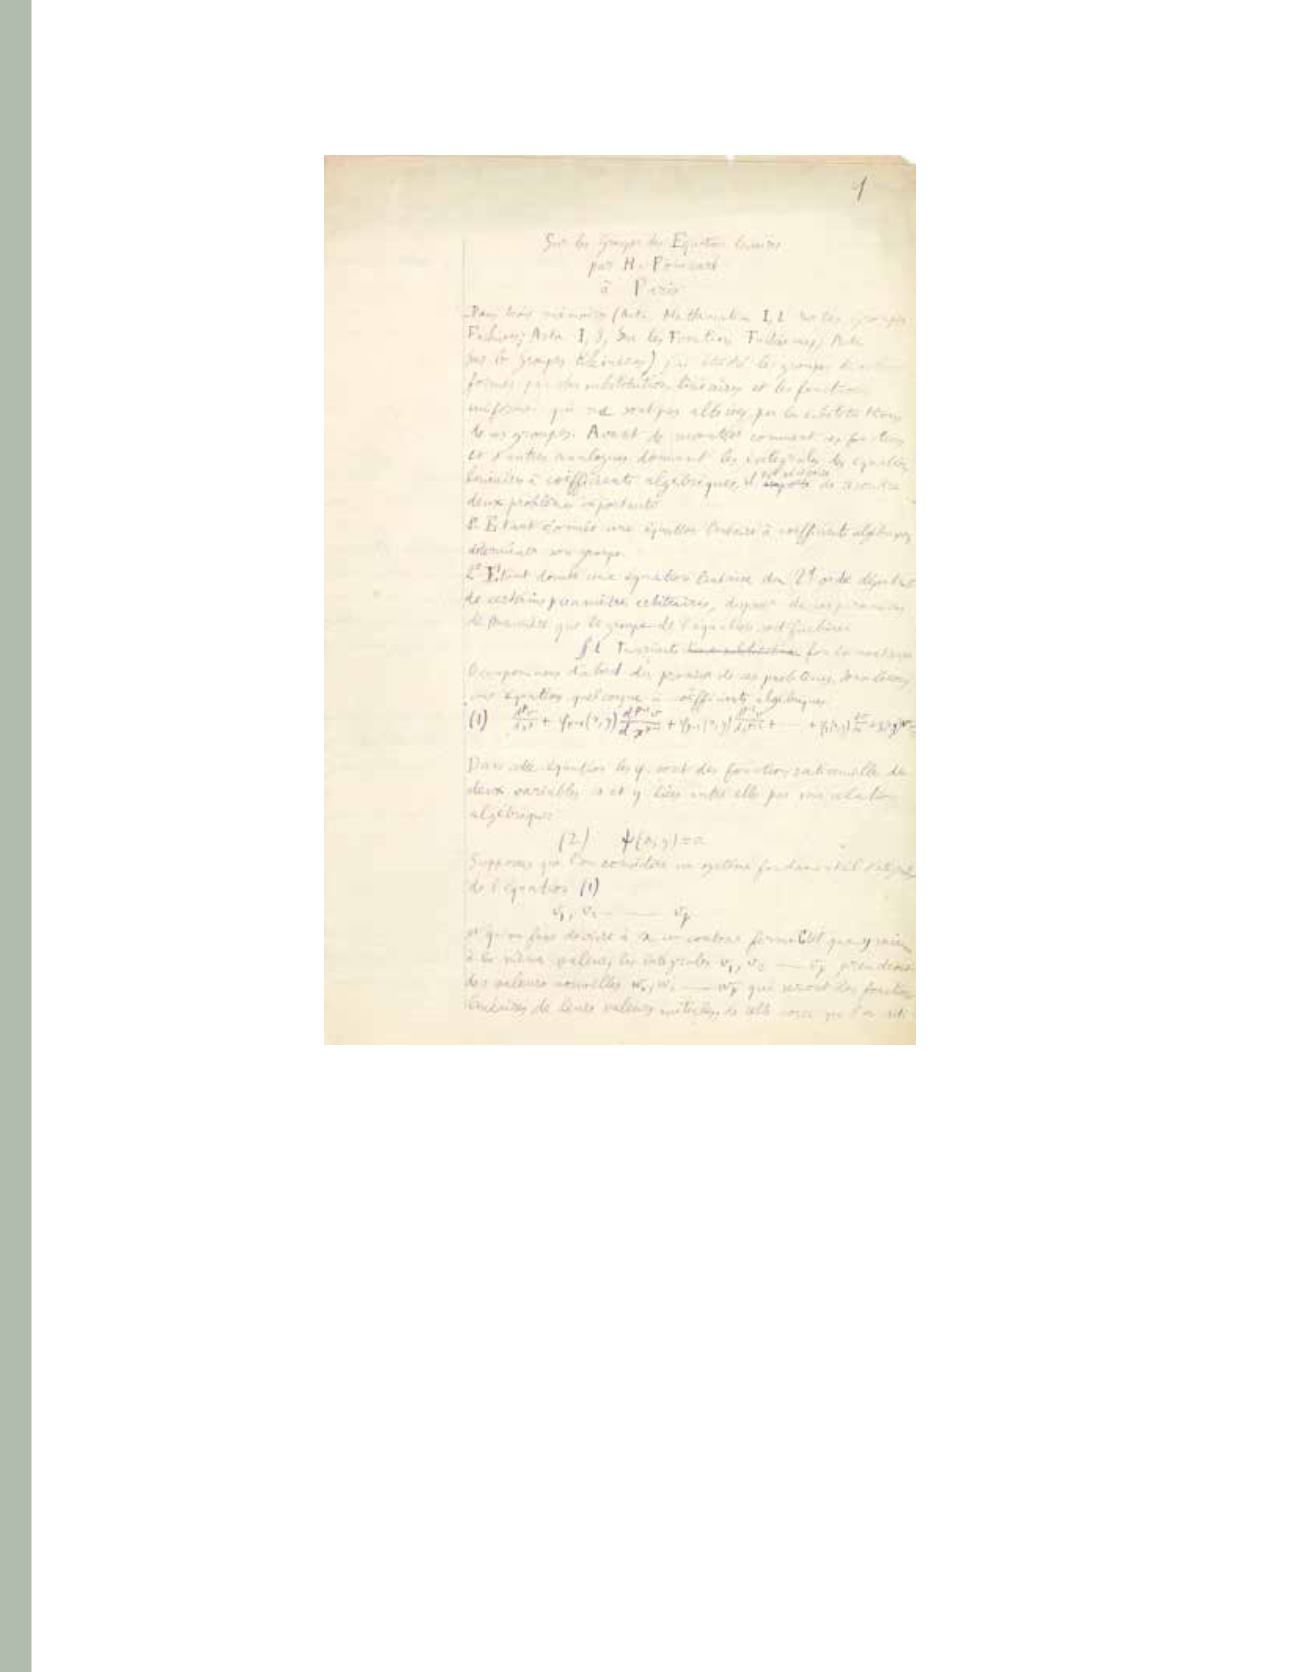 1
Sur les Groupes des Equations linéaires
par H. Poincaré
à Paris
Dans trois mémoires (Acta Mathematica I, 1 sur les groupes
Fuchsiens; Acta I, 3, Sur les Fonctions Fuchsiennes; Acta
sur les groupes Kleinéens) j'ai étudié les groupes
formés par des substitutions linéaires et les fonctions
uniformes qui ne sont pas altérées par les substitutions
de ces groupes. Avant de montrer comment ces fonctions
et d'autres analogues donnent les intégrales des équations
linéaires à coëfficients algébriques, il est nécessaire de résoudre
deux problèmes importants
1º Etant donnée une équation linéaire à coëfficients algébriques,
déterminer son groupe.
2º Etant donnée une équation linéaire du 2d ordre dépendant
de certains paramètres arbitraires, disposer de ces paramètres
de manière que le groupe de l'équation soit fuchsien.
§ 1. Invariants fondamentaux
Occupons nous d'abord du premier de ces problèmes.
une équation quelconque à coëfficients algébriques.
(1) d^p v/dx^p + φ_{p-1}(x, y) d^{p-1} v/dx^{p-1} + φ_{p-2}(x, y) d^{p-2} v/dx^{p-2} + ... + φ_1(x, y) dv/dx + φ_0(x, y) v =
Dans cette équation les φ sont des fonctions rationnelles de
deux variables x et y liées entre elles par une relation
algébrique:
(2) ψ(x, y) = o
Supposons que l'on considère un système fondamental d'intégrales
de l'équation (1)
v_1, v_2 ——— v_p
et qu'on fasse décrire à x un contour fermé tel que y revienne
à la même valeur, les intégrales v_1, v_2 — v_p prendront
des valeurs nouvelles w_1, w_2 — w_p qui seront des fonctions
linéaires de leurs valeurs initiales, de telle sorte que l'on